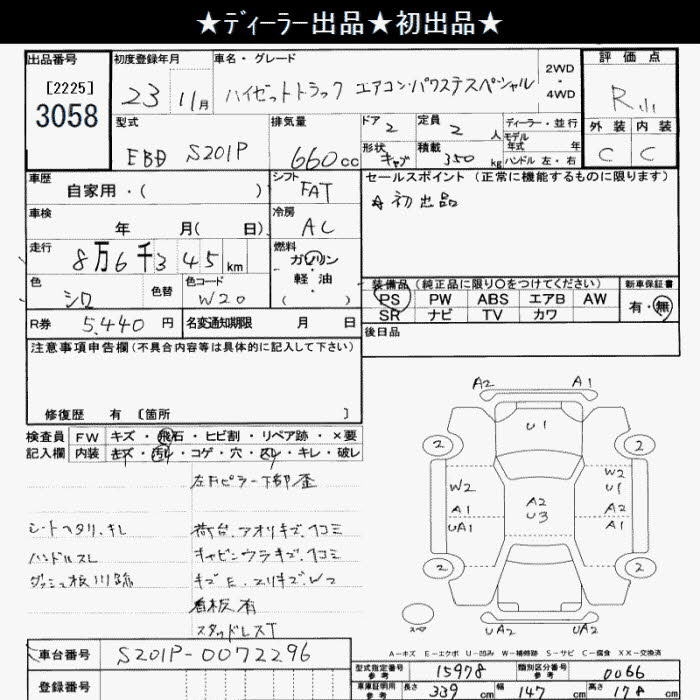 ★ﾃﾞｨｰﾗｰ出品★初出品★
出品番号
[2225]
3058
初度登録年月
23 11月
車名・グレード
ハイゼットトラック エアコン・パワステスペシャル
2WD
・
4WD
評価点
R
外装 内装
C C
型式
EBD S201P
排気量
660cc
ドア
2
定員
2 人
形状
キャブ
積載
350 kg
ディーラー・並行
モデル
年式 年
ハンドル 左・右
車歴
自家用・( )
シフト
FAT
車検
年 月( 日)
冷房
AC
走行
8万6千345km
燃料
ガソリン
・
軽油
( )
色
シロ
色替
色コード
W20
R券
5,440 円
名変通知期限 月 日
セールスポイント(正常に機能するものに限ります)
初出品
装備品(純正品に限り○をつけてください)
PS PW ABS エアB AW
SR ナビ TV カワ
新車保証書
有・無
後日品
注意事項申告欄(不具合内容等は具体的に記入して下さい)
修復歴 有 〔箇所 〕
検査員
記入欄
FW キズ・飛石・ヒビ割・リペア跡・×要
内装 キズ・汚れ・コゲ・穴・スレ・キレ・破レ
左Fピラー下部歪
シートヘタリ、キレ
荷台、アオリキズ、凹コミ
ハンドルスレ
キャビンウラキズ、凹コミ
キズE、スリキズ、W2
看板有
スタッドレスT
A2 A1
U1
2 2
W2
A1
UA1
A2
U3
W2
U1
A2
A1
2 2
スペア
UA2 UA2
A-キズ E-エクボ U-凹み W-補修跡 S-サビ C-腐食 XX-交換済
車台番号
S201P-0072296
登録番号
型式指定番号
参考
15978
類別区分番号
参考
0066
車庫証明用
参考
長さ 339 cm 幅 147 cm 高さ 178 cm